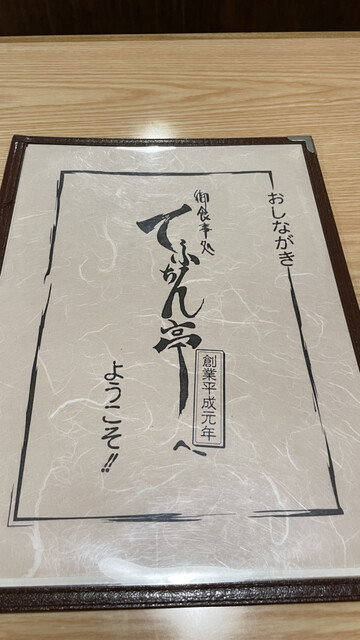 おしながき
御食事処
てふがん亭へ
創業平成元年
ようこそ!!